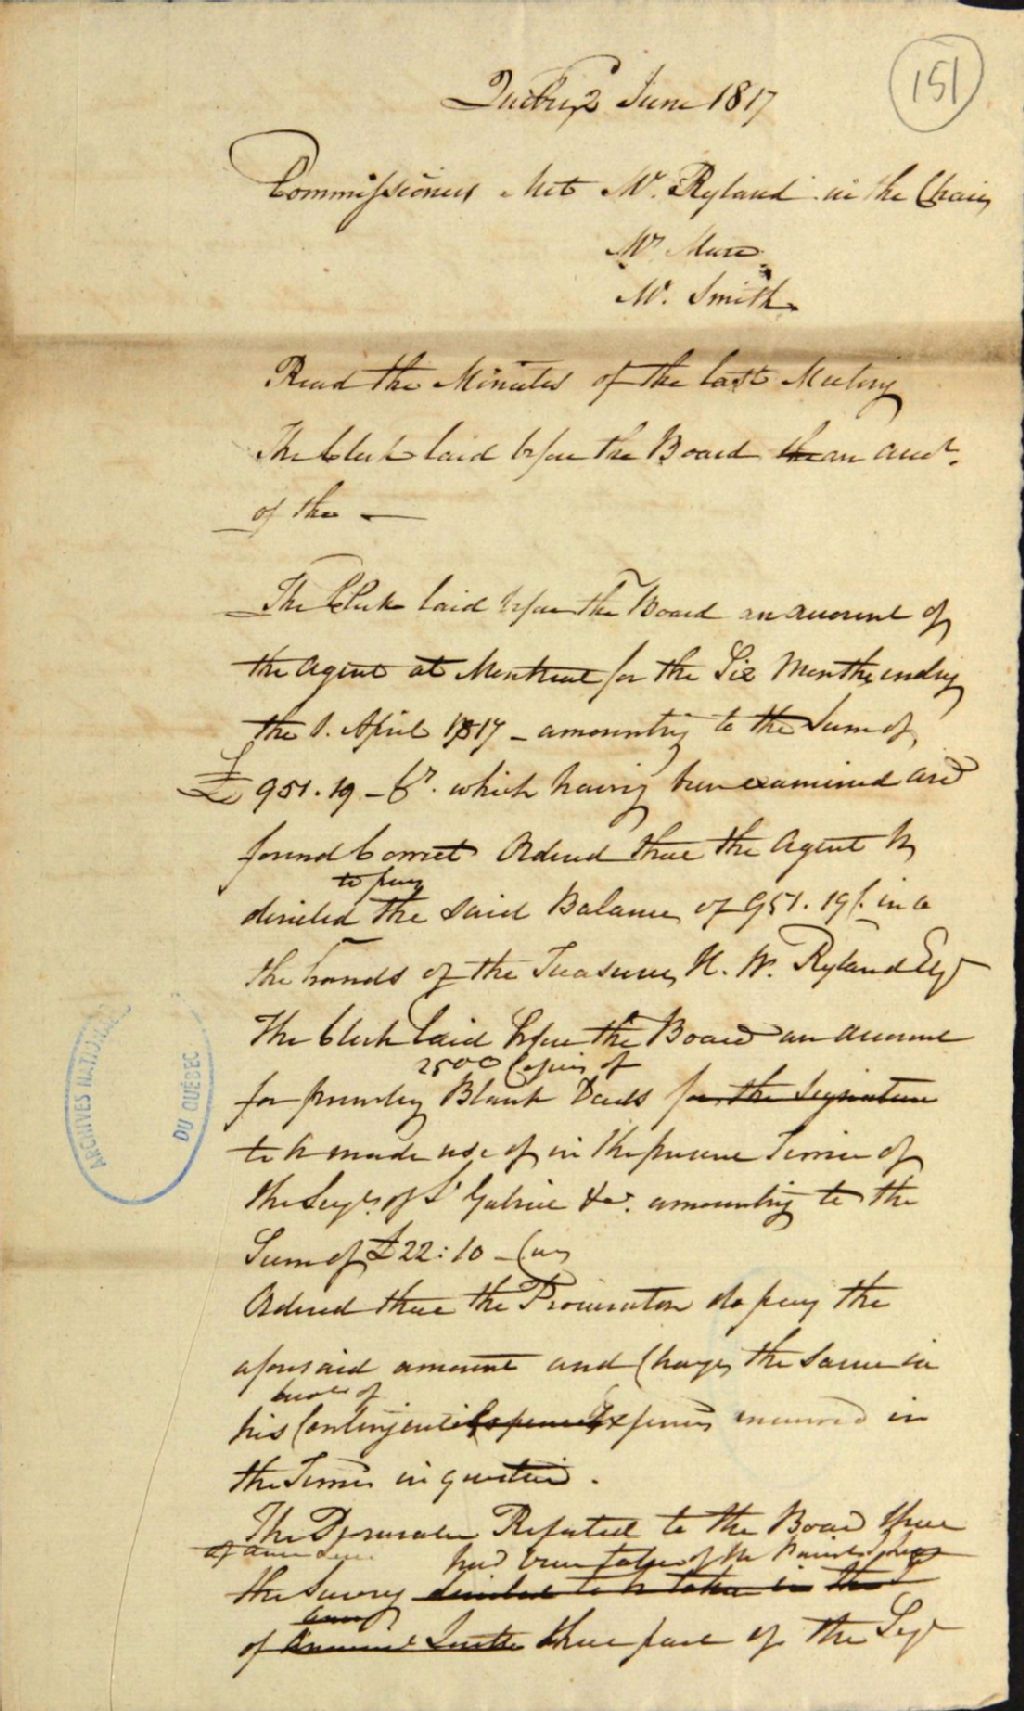 151
Quebec 2 June 1817
Commissioners Met Mr. Ryland in the Chair
Mr Mure
Mr. Smith
Read the Minutes of the last Meeting
The Clerk laid before the Board the an acct.
of the —
The Clerk laid before the Board an account of
the Agent at Montreal for the Six Months ending
the 1. April 1817 - amounting to the Sum of
£ 951. 19 - which having been examined and
found Correct Ordered that the Agent be
to pay
directed the said Balance of 951. 19 in
the hands of the Treasurer H. W. Ryland Esqr
The Clerk laid before the Board an account
2500 Copies of
for printing Blank Deeds for the Signature
to be made use of in the present Terrier of
the Seigs. of St Gabriel &c. amounting to the
Sum of £22:10 - Cur
Ordered that the Procurator do pay the
aforesaid amount and Charge the same in
his Contingent Expences Expences incurred in
the Terrier in question.
The Procurator Reported to the Board that
had been taken of the
the Survey directed to be taken in the
of that part of the Seigr
ARCHIVES NATIONALES DU QUÉBEC